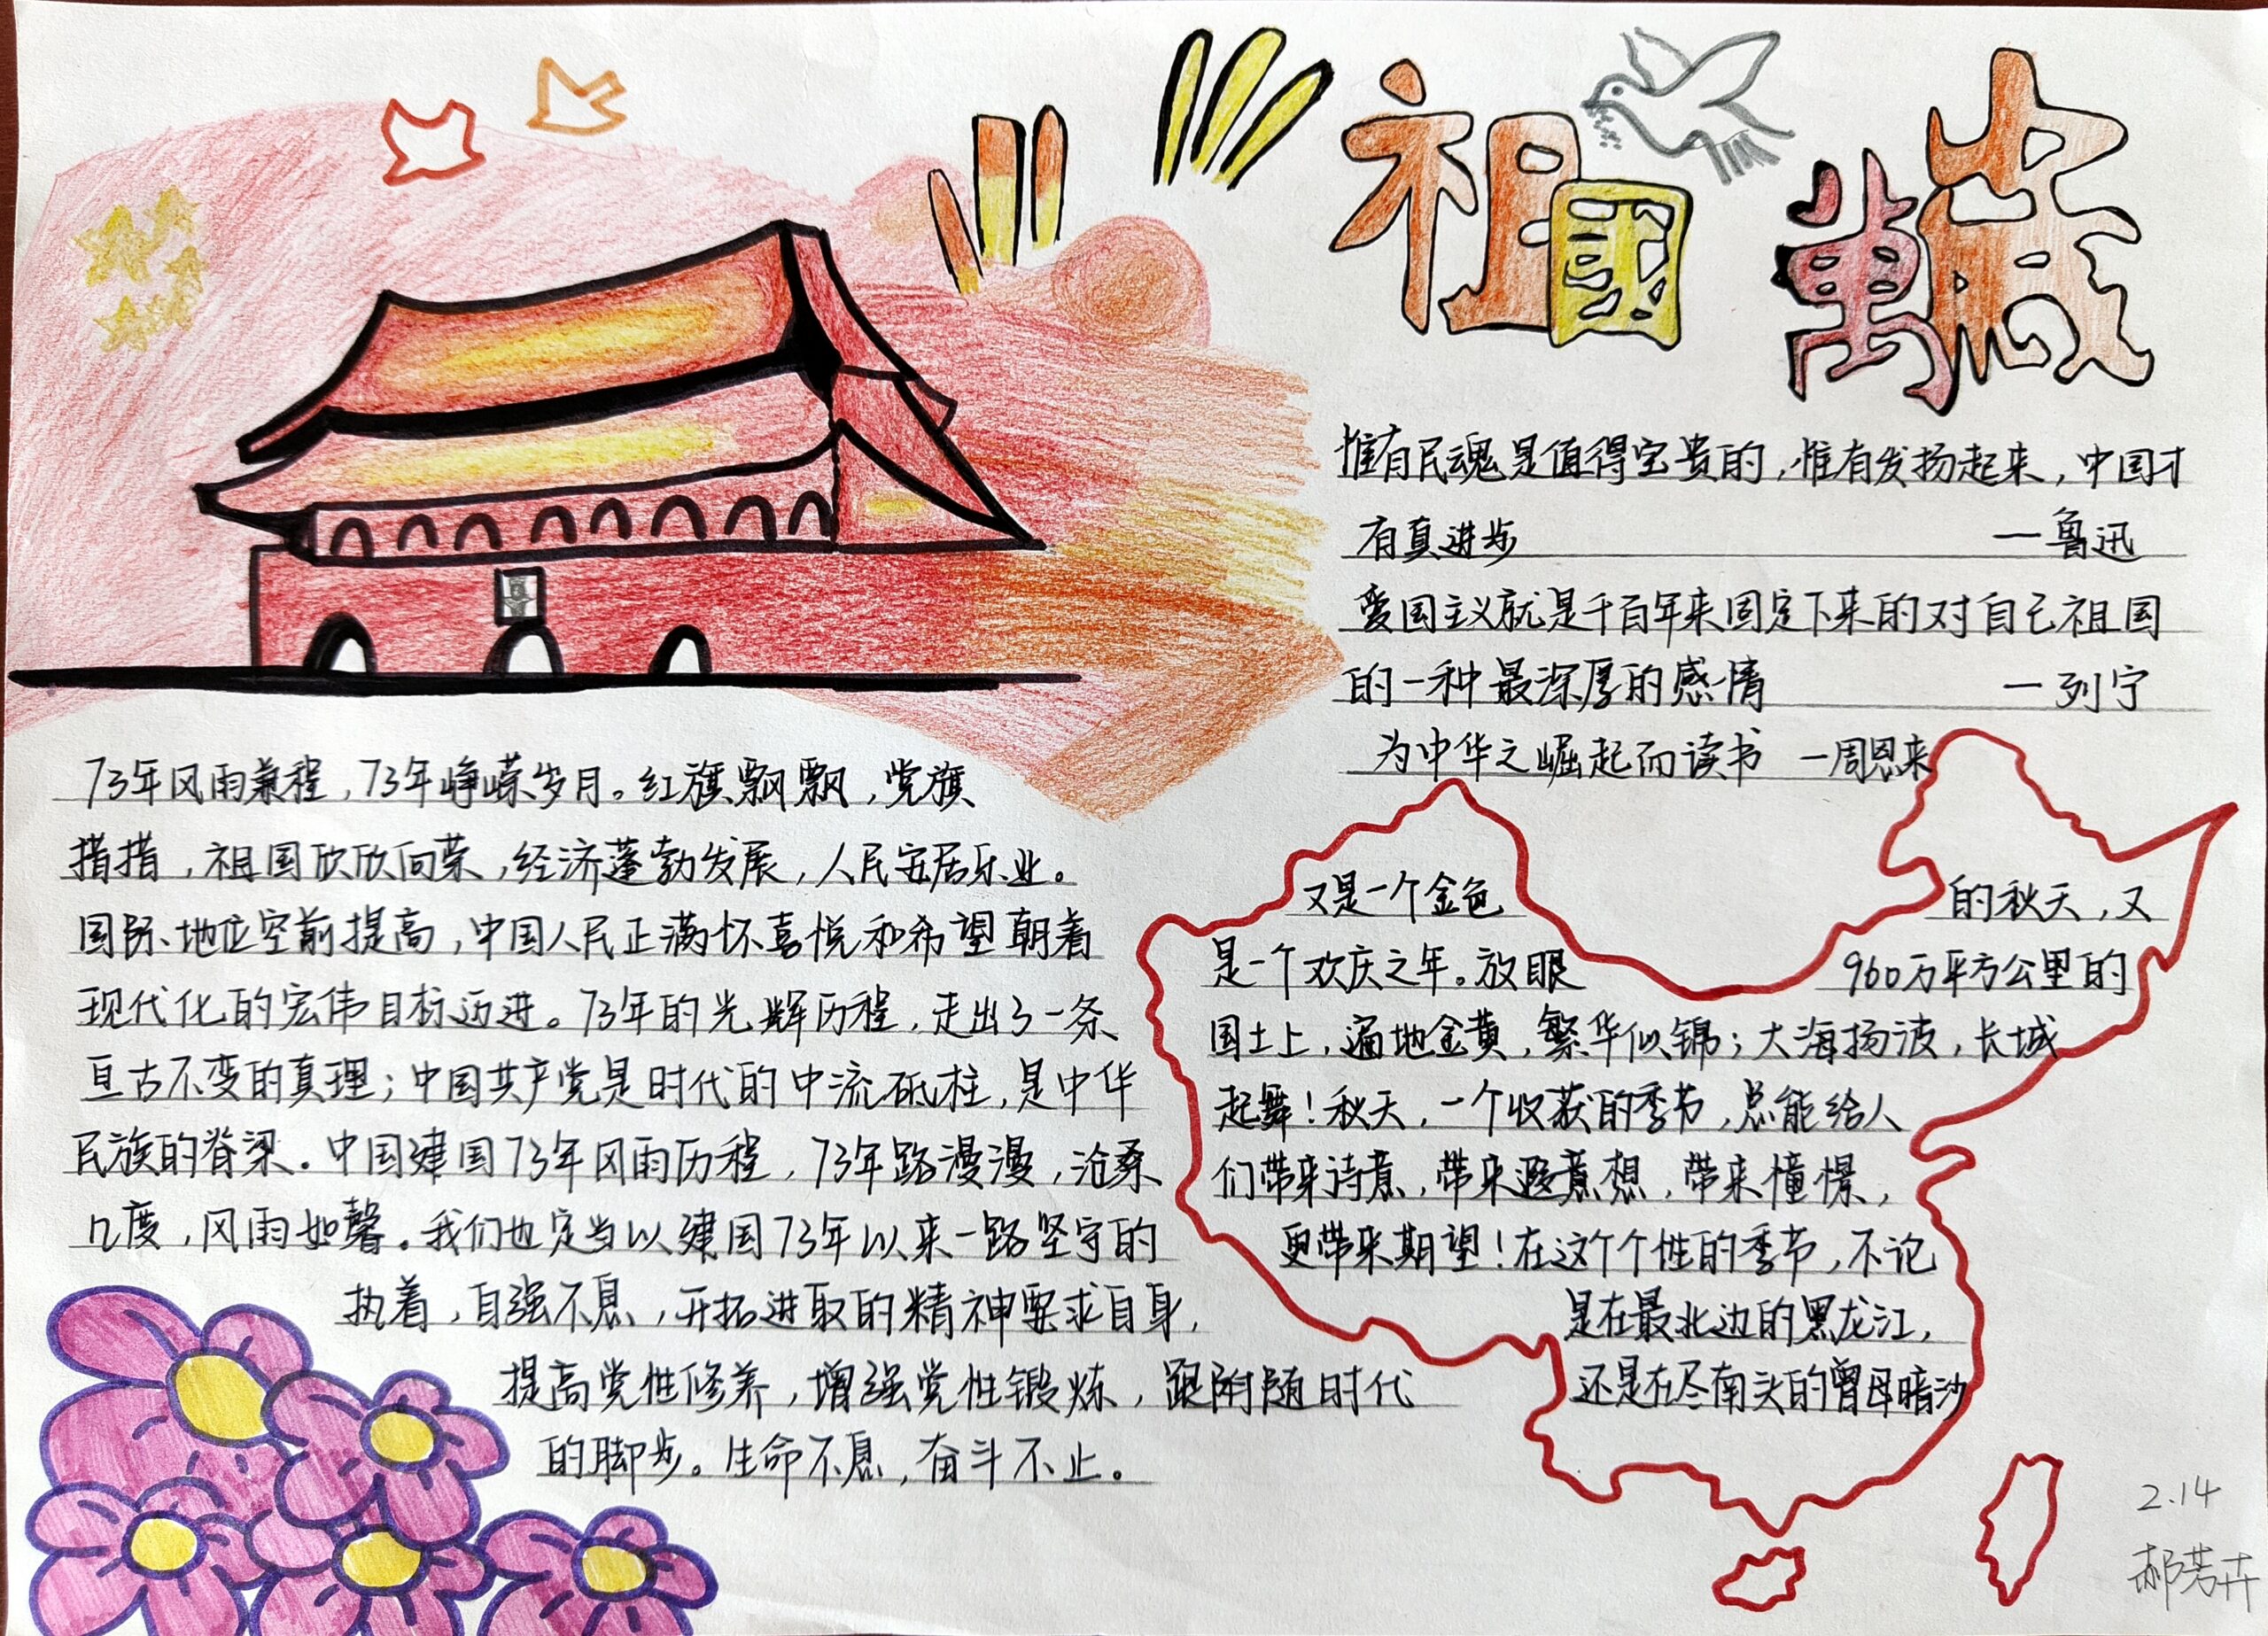 祖國萬歲
惟有民魂是值得宝贵的，惟有发扬起来，中国才
有真进步 一鲁迅
爱国主义就是千百年来固定下来的对自己祖国
的一种最深厚的感情 一列宁
为中华之崛起而读书 一周恩来
73年风雨兼程，73年峥嵘岁月。红旗飘飘，党旗
指指，祖国欣欣向荣，经济蓬勃发展，人民安居乐业。
国际地位空前提高，中国人民正满怀喜悦和希望朝着
现代化的宏伟目标迈进。73年的光辉历程，走出了一条
亘古不变的真理；中国共产党是时代的中流砥柱，是中华
民族的脊梁。中国建国73年风雨历程，73年路漫漫，沧桑
几度，风雨如馨。我们也定当以建国73年以来一路坚守的
执着，自强不息，开拓进取的精神要求自身，
提高党性修养，增强党性锻炼，跟附随时代
的脚步。生命不息，奋斗不止。
又是一个金色的秋天，又
是一个欢庆之年。放眼960万平方公里的
国土上，遍地金黄，繁华似锦；大海扬波，长城
起舞！秋天，一个收获的季节，总能给人
们带来诗意，带来遐意想，带来憧憬，
更带来期望！在这个个性的季节，不论
是在最北边的黑龙江，
还是在尽南头的曾母暗沙
2.14
郝芳卉